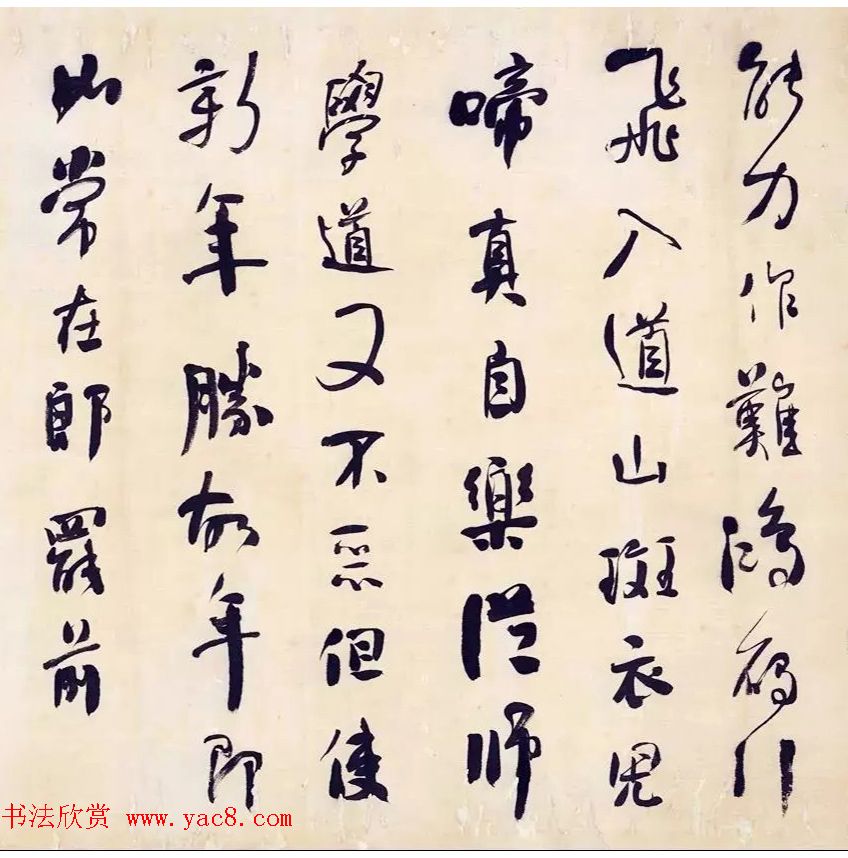 能力作難鴻鴈行
飛入道山斑衣兒
啼真自樂從師
學道又不惡但使
新年勝故年即
如常在郎罷前
书法欣赏 www.yac8.com